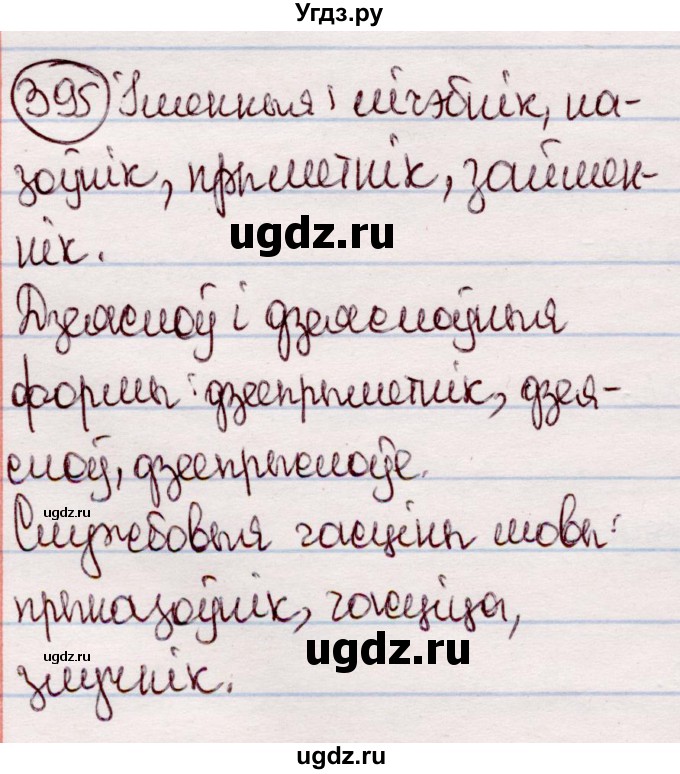 Угдз.ру
395 Іменныя: лічэбнік, на-
зоўнік, прыметнік, займен-
нік.
ugdz.ru
Дзеяслоў і дзеяслоўныя
формы: дзеепрыметнік, дзея-
слоў, дзеепрыслоўе.
Службовыя часціны мовы:
прыназоўнік, часціца,
ugdz.ru
ugdz.ru
злучнік.
ugdz.ru
ugdz.ru